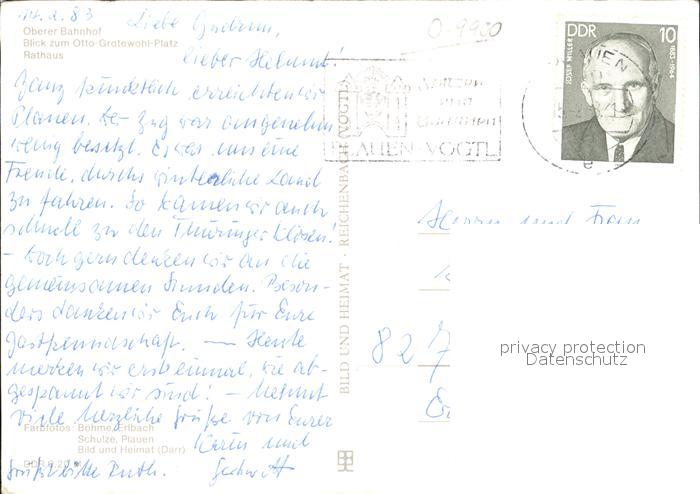 14.2.83
Liebe Gudrun,
lieber Helmut!
Oberer Bahnhof
Blick zum Otto-Grotewohl-Platz
Rathaus
Ganz pünktlich erreichten wir
Plauen. Der Zug war angenehm
wenig besetzt. Es war uns eine
Freude, durchs winterliche Land
zu fahren. So kamen wir auch
schnell zu den Thüringer Klösen!
– Doch gern denken wir an die
gemeinsamen Stunden. Beson-
ders danken wir Euch für Eure
Gastfreundschaft. — Heute
merken wir erst einmal, wie ab-
gespannt wir sind! – Nehmt
viele herzliche Grüße von Eurer
Karin und
Grüßt bitte Ruth.
Farbfotos: Böhme, Erlbach
Schulze, Plauen
Bild und Heimat (Darr)
BILD UND HEIMAT · REICHENBACH (VOGTL)
0-9900
PLAUEN · VOGTL
DDR 10
JOSEF MILLER 1883-1964
Herrn und Frau
827
privacy protection
Datenschutz